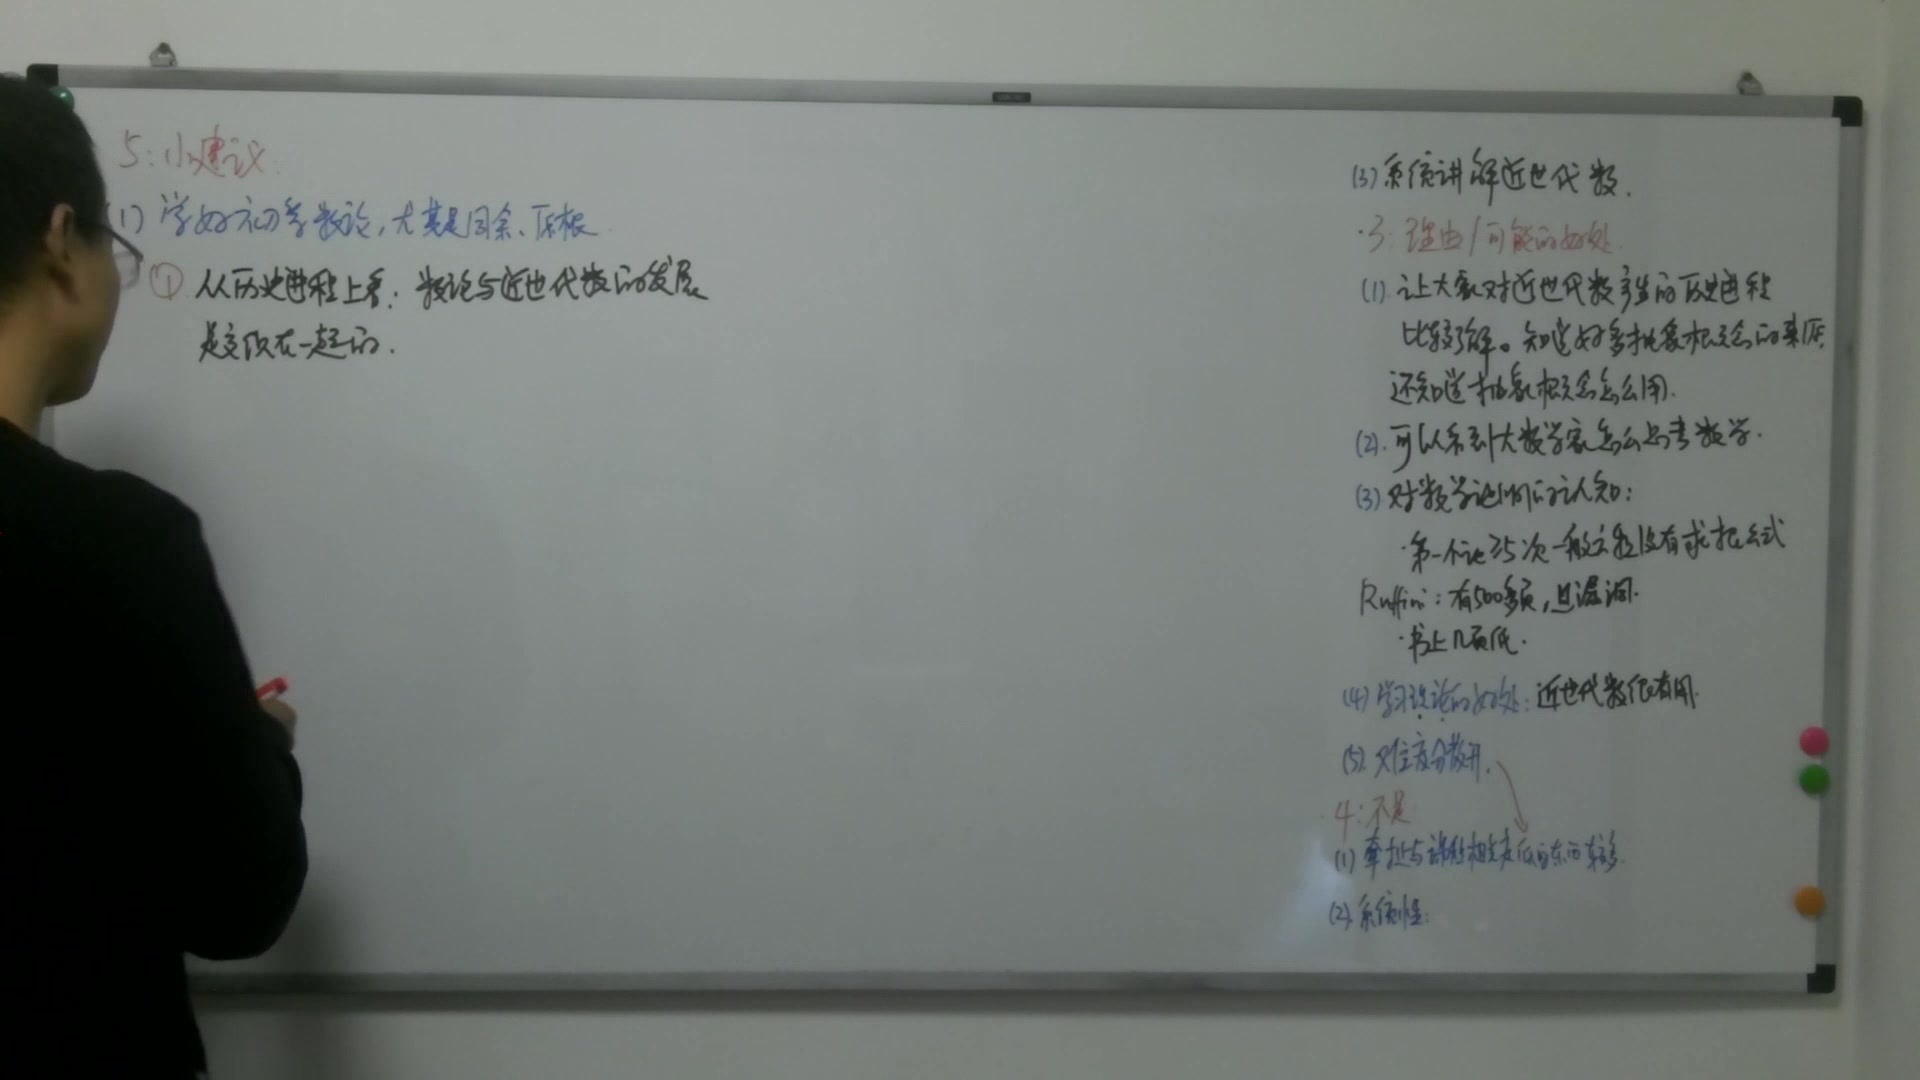 5: 小建议:
(1) 学好初等数论,尤其是同余、原根.
① 从历史进程上看: 数论与近世代数的发展
是交织在一起的.
(3) 系统讲解近世代数.
3: 理由/可能的好处.
(1). 让大家对近世代数产生的历史进程
比较了解。知道好多抽象概念的来历.
还知道抽象概念怎么用.
(2). 可以看到大数学家怎么思考数学.
(3) 对数学证明的认知:
·第一个证≥5次一般方程没有求根公式
Ruffini: 有500多页,且漏洞.
·书上几页纸.
(4) 学习理论的好处: 近世代数很有用.
(5). 难度分散开.
4: 不足
(1) 牵扯与课程相关度低的东西较多.
(2). 系统性: